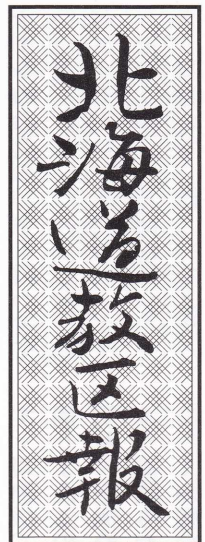 北海道教区報